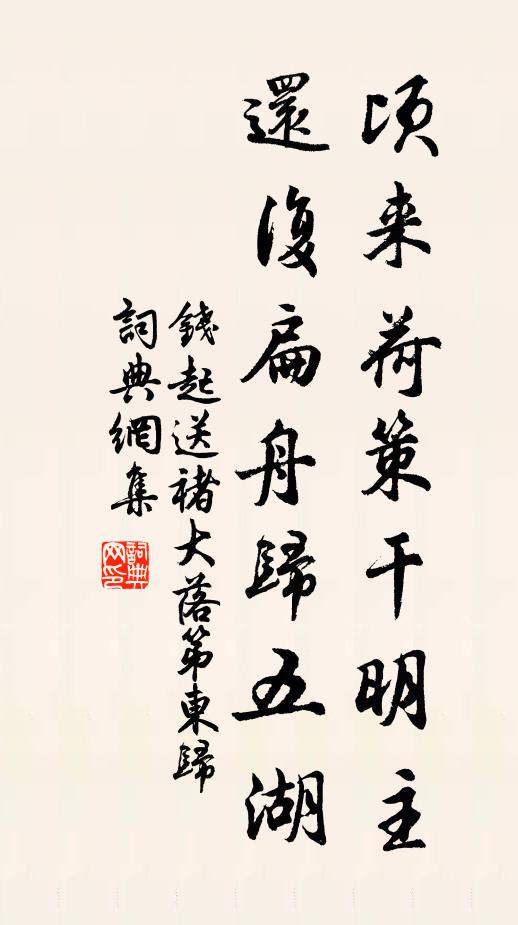 頃来荷策干明主
還復扁舟歸五湖
錢起送褚大落第東歸
詞典網集
詞典网印